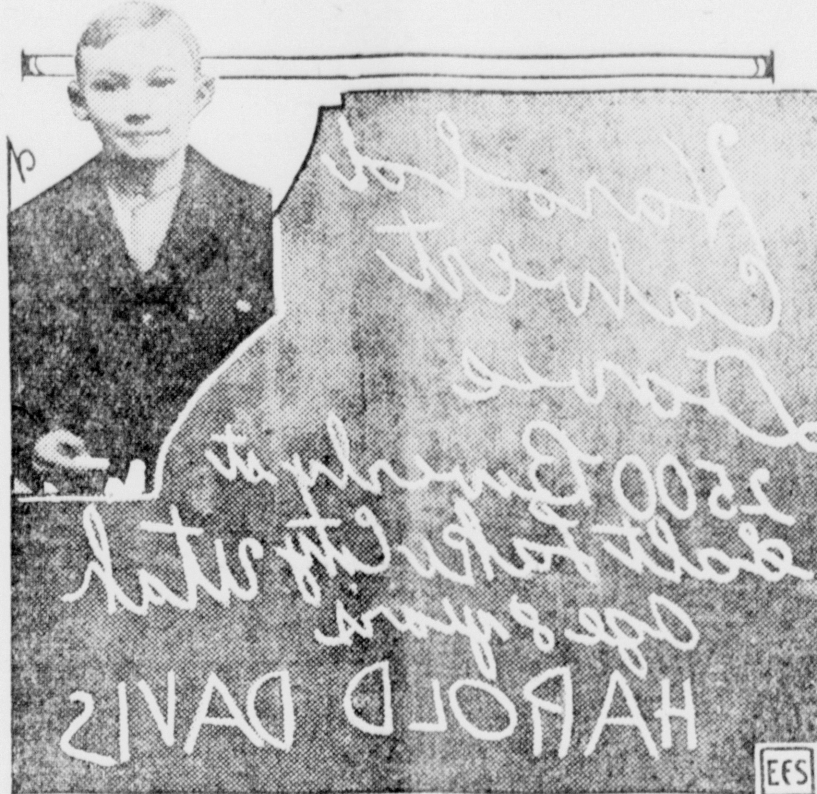 Harold
Calvert
Davis
2500 Beverly st
Salt Lake City Utah
age 8 years
HAROLD DAVIS
EFS